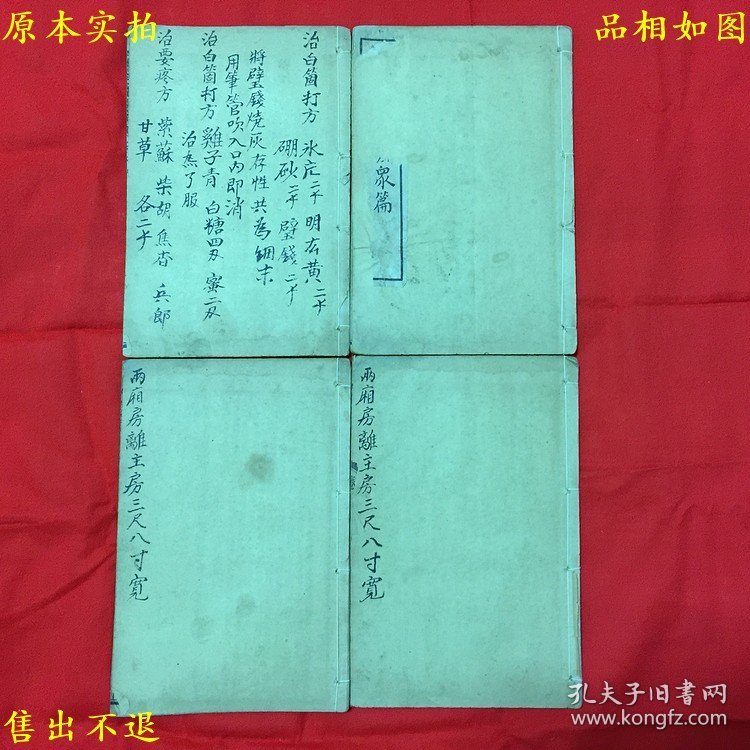 原本实拍
品相如图
治白箇打方 氷片二个 明太黄二个
硼砂二个 壁錢二个
將壁錢燒灰存性共為細末
用筆管吹入口內即消
治白箇打方 雞子青 白糖四刄 蜜二刄
治杰了服
治要疼方 紫蘇 柴胡 焦杏 兵郎
甘草 各二个
衆篇
兩廂房離主房三尺八寸寬
兩廂房離主房三尺八寸寬
售出不退
孔夫子旧书网
www.kongfz.com